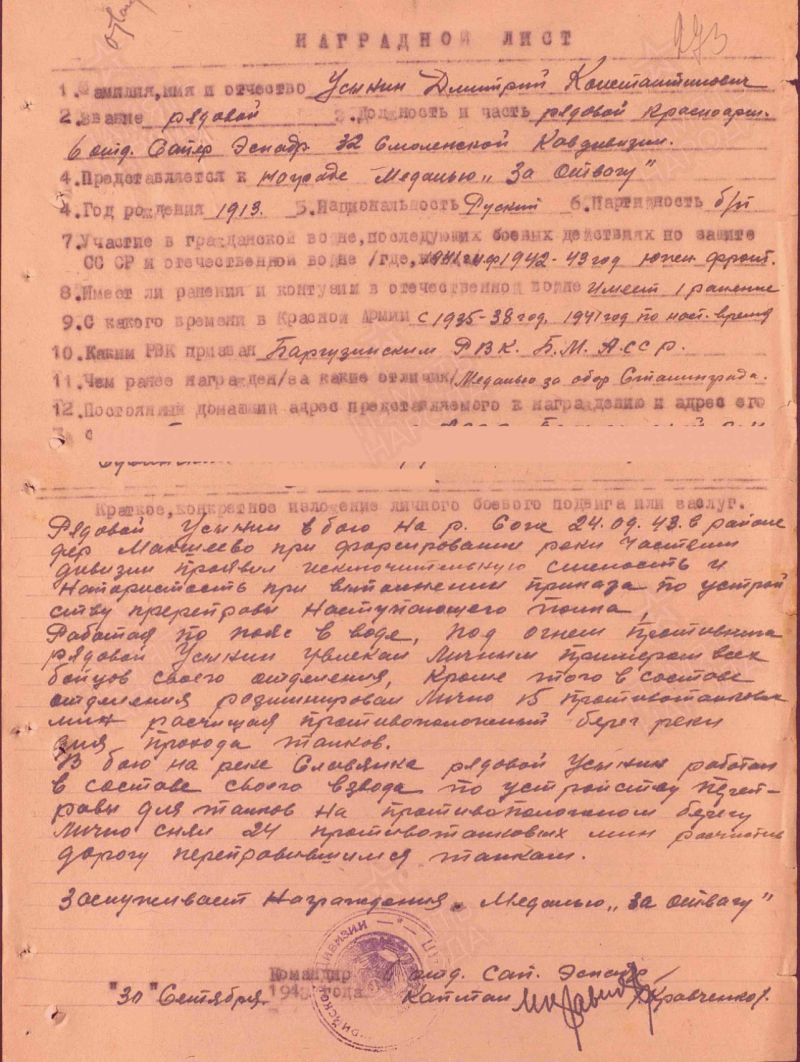 273
НАГРАДНОЙ ЛИСТ
1. Фамилия, имя и отчество Усынин Дмитрий Константинович
2. Звание рядовой 3. Должность и часть рядовой красноарм.
6 отд. Сапер Эскадр 32 Смоленской Кавдивизии.
4. Представляется к награде Медалью „За Отвагу"
4. Год рождения 1913. 5. Национальность Руский 6. Партийность б/п
7. Участие в гражданской войне, последующих боевых действиях по защите
СССР и отечественной войне /где, 1942-43 год Южн фронт.
8. Имеет ли ранения и контузии в отечественной войне имеет 1 ранение
9. С какого времени в Красной Армии с 1935-38 год. 1941 год по наст. время
10. Каким РВК призван Баргузинским РВК. Б.М.АССР.
11. Чем ранее награжден/за какие отличия/ Медалью за обор Сталинграда.
12. Постоянный домашний адрес представляемого к награждению и адрес его
Краткое, конкретное изложение личного боевого подвига или заслуг.
Рядовой Усынин в бою на р. Сож 24.09.43. в районе
дер Макшеево при форсировании реки частями
дивизии проявил исключительную смелость и
напористость при выполнении приказа по устрой
ству переправы наступающего полка,
Работая по пояс в воде, под огнем противника
рядовой Усынин увлекал личным примером всех
бойцов своего отделения, Кроме этого в составе
отделения розминировал лично 15 противотанковых
мин расчищая противоположный берег реки
для прохода танков.
В бою на реке Славянка рядовой Усынин работал
в составе своего взвода по устройству переп-
равы для танков на противоположном берегу
лично снял 24 противотанковых мин расчистив
дорогу переправившимся танкам.
Заслуживает Награждения Медалью „За отвагу"
Командир 6 отд. Сап. Эскадр
"30" Сентября 1943 года. Капитан /Кравченко/.